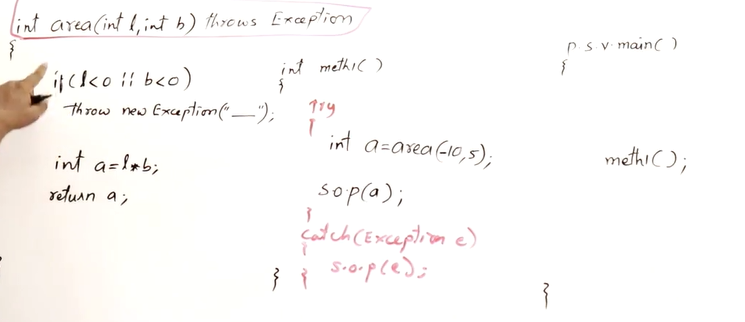 int area(int l, int b) throws Exception
{
if(l<0 || b<0)
throw new Exception("—");
int a=l*b;
return a;
}
int meth1()
{
try
{
int a=area(-10,5);
s.o.p(a);
}
catch(Exception e)
{
s.o.p(e);
}
}
p.s.v.main()
{
meth1();
}